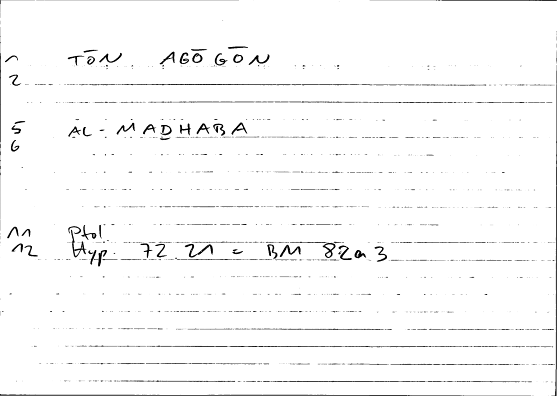 1 TŌN AGŌGŌN
2
5 AL-MADHABA
6
11 Ptol
12 Hyp. 72 21 = BM 82a3